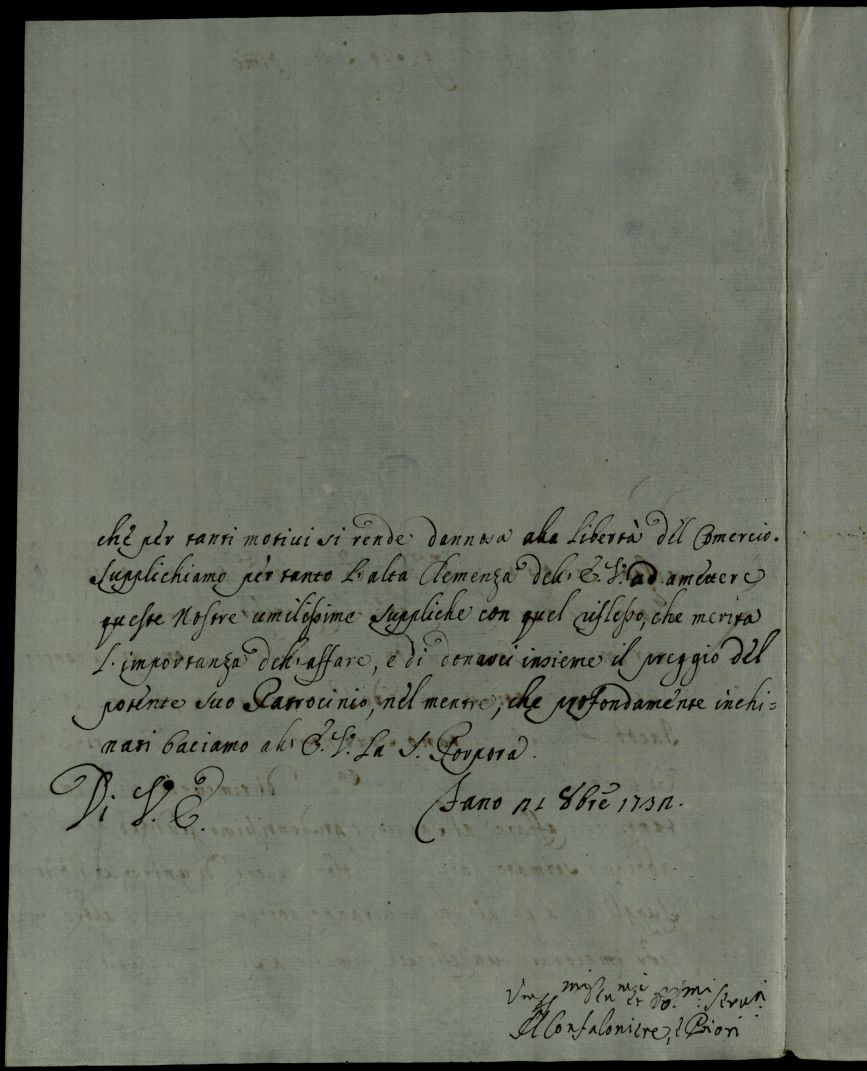 che per tanti motivi si rende dannosa alla Libertà del Comercio.
Supplichiamo per tanto l'alta Clemenza dell' E. V. ad amettere
queste Nostre umilissime suppliche con quel riflesso, che merita
l'importanza dell'affare, e di donarci insieme il preggio del
potente suo Patrocinio, nel mentre, che profondamente inchi=
nati baciamo all' E. V. la S. Porpora.
Di V. E.
Fano 21 8bre 1732.
Servi
Il Confaloniere, e Priori